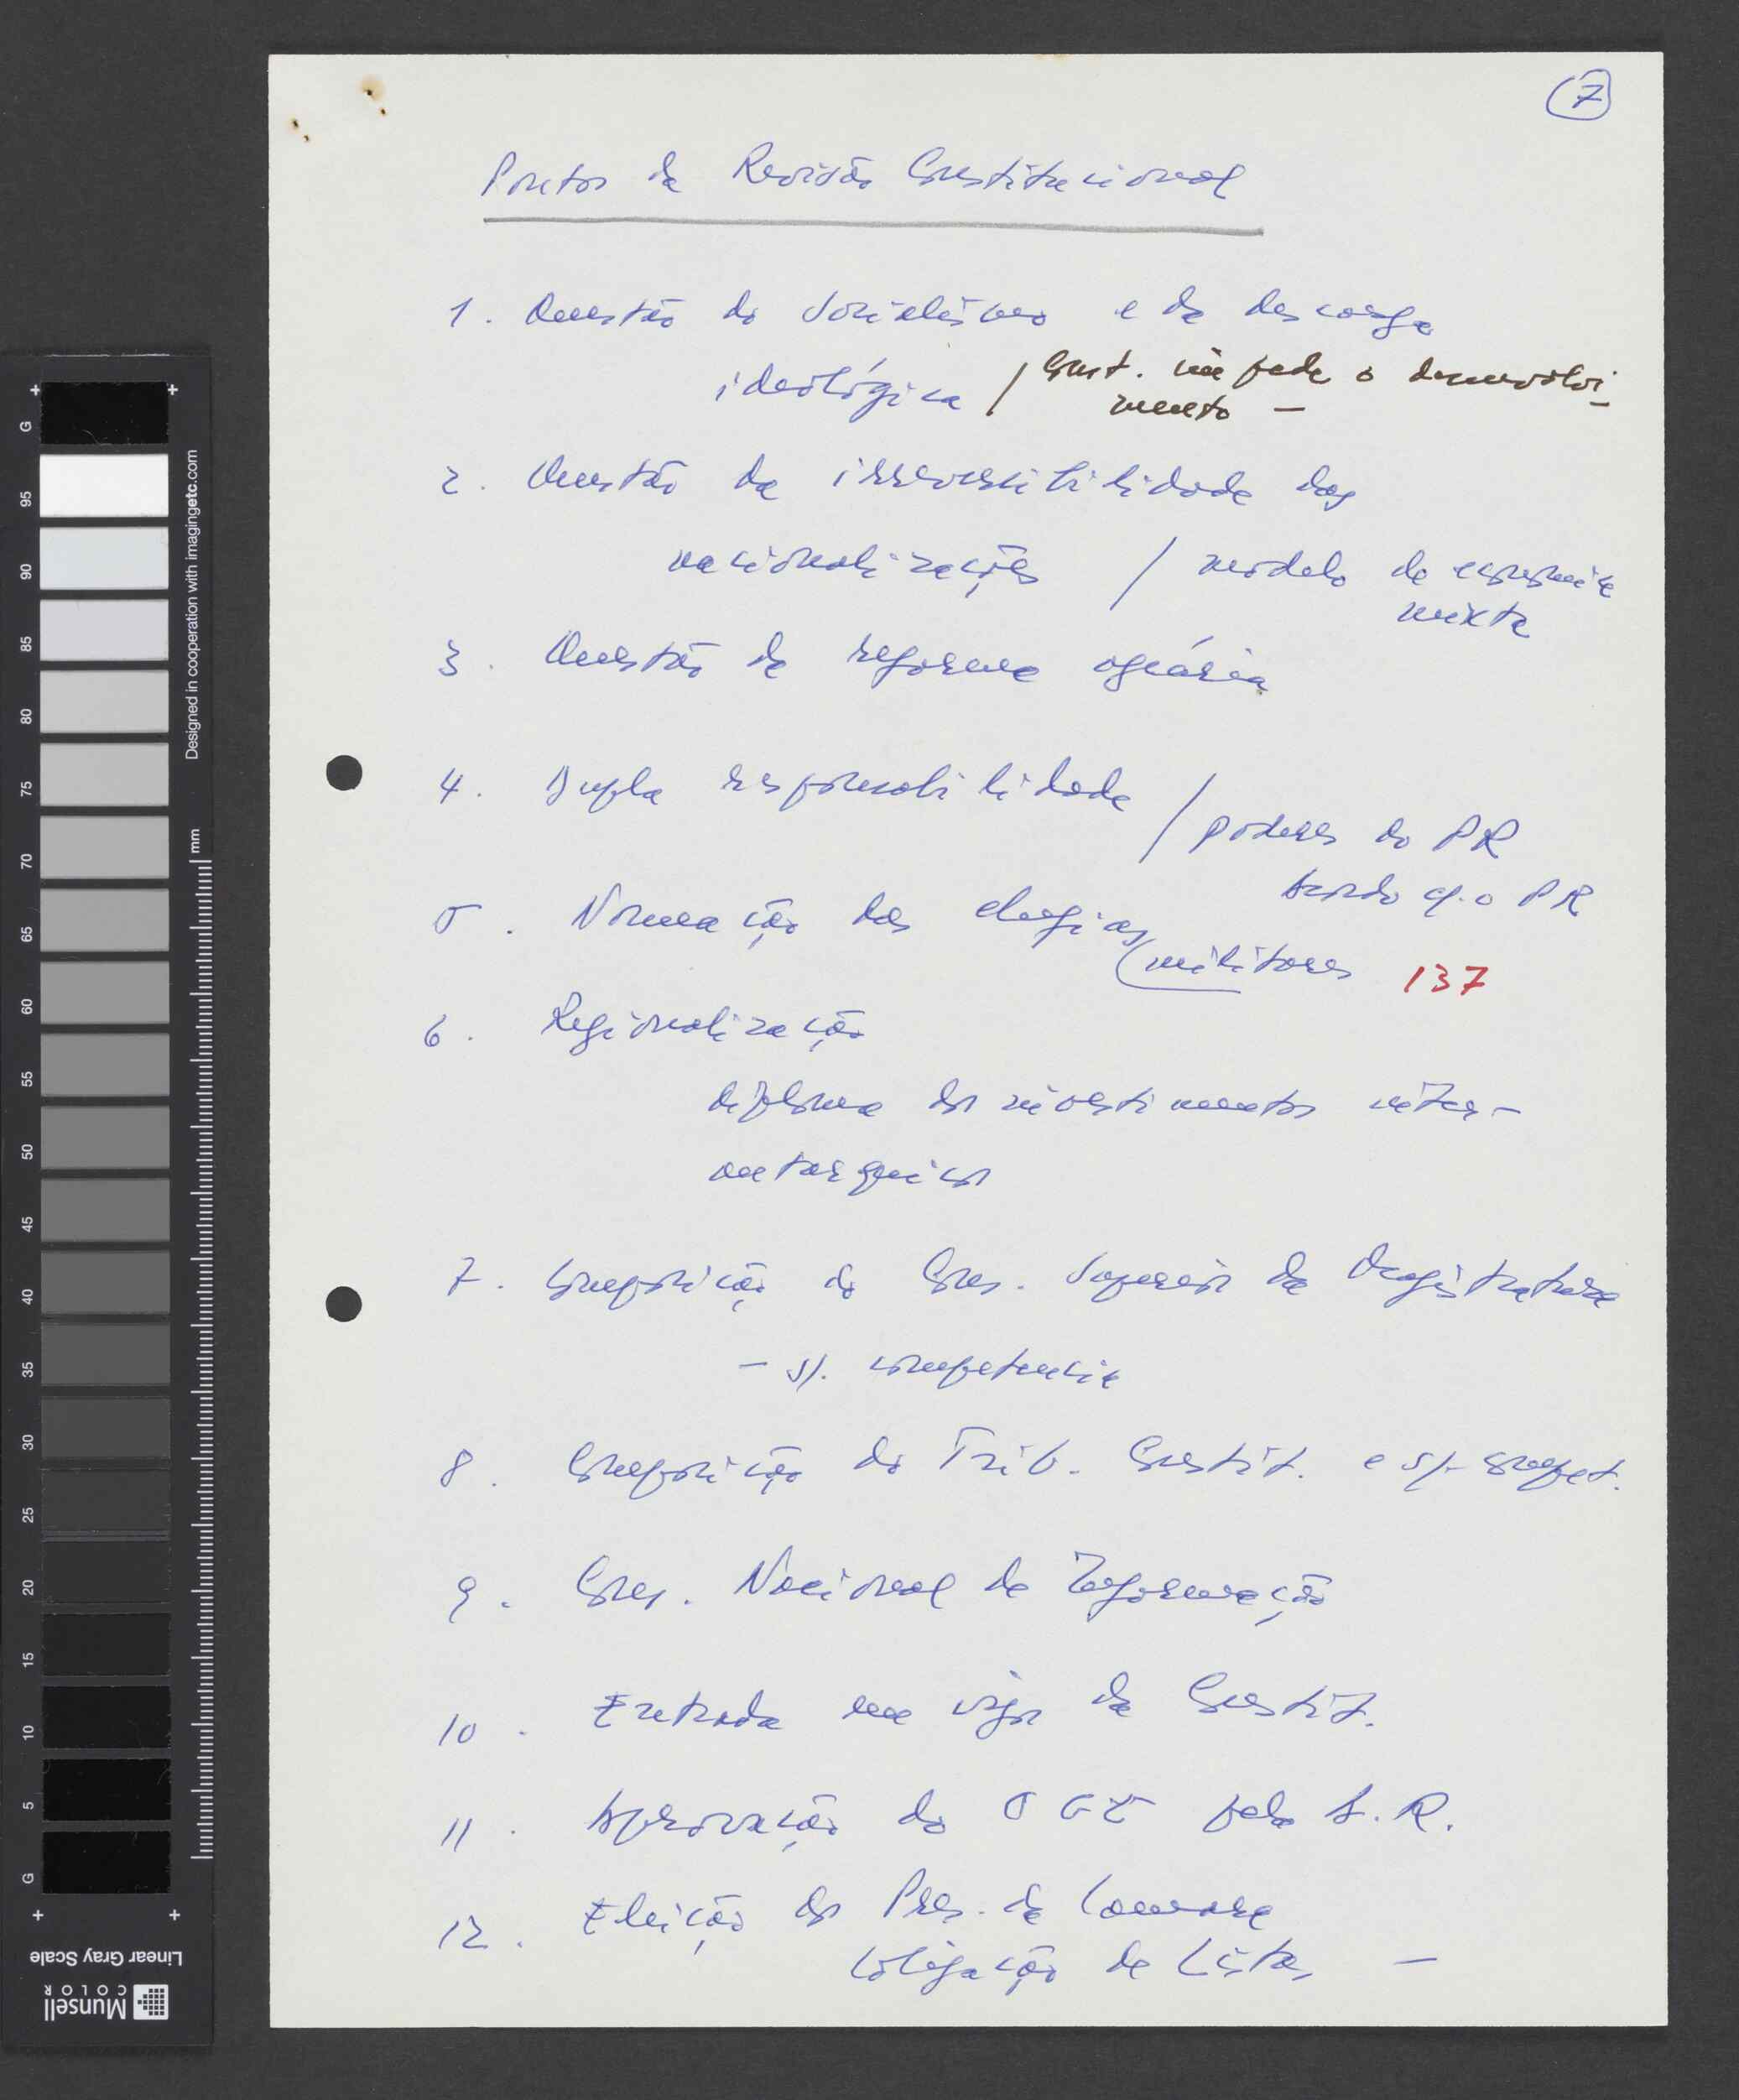 7
Pontos da Revisão Constitucional
1. Questão do Socialismo e da descarga
ideológica / Const. não pede o desenvolvi-
mento –
2. Questão da irreversibilidade das
nacionalizações / modelo de economia
mixta
3. Questão da reforma agrária
4. Dupla responsabilidade / poderes do PR
5. Nomeação das chefias acordo c/. o PR
militares 137
6. Regionalização
diploma dos investimentos inter-
autarquicos
7. Composição do Cons. Superior da Magistratura
– s/. competencia
8. Composição do Trib. Constit. e s/. compet.
9. Cons. Nacional de Informação
10. Entrada em vigor da Constit.
11. Aprovação do OGE pela A.R.
12. Eleição do Pres. da Camara
Coligação de Listas –
G
95
90
85
80
75
70
65
60
55
50
45
40
35
30
25
20
15
10
5
G
Designed in cooperation with imagingetc.com
mm
Linear Gray Scale
Munsell
COLOR